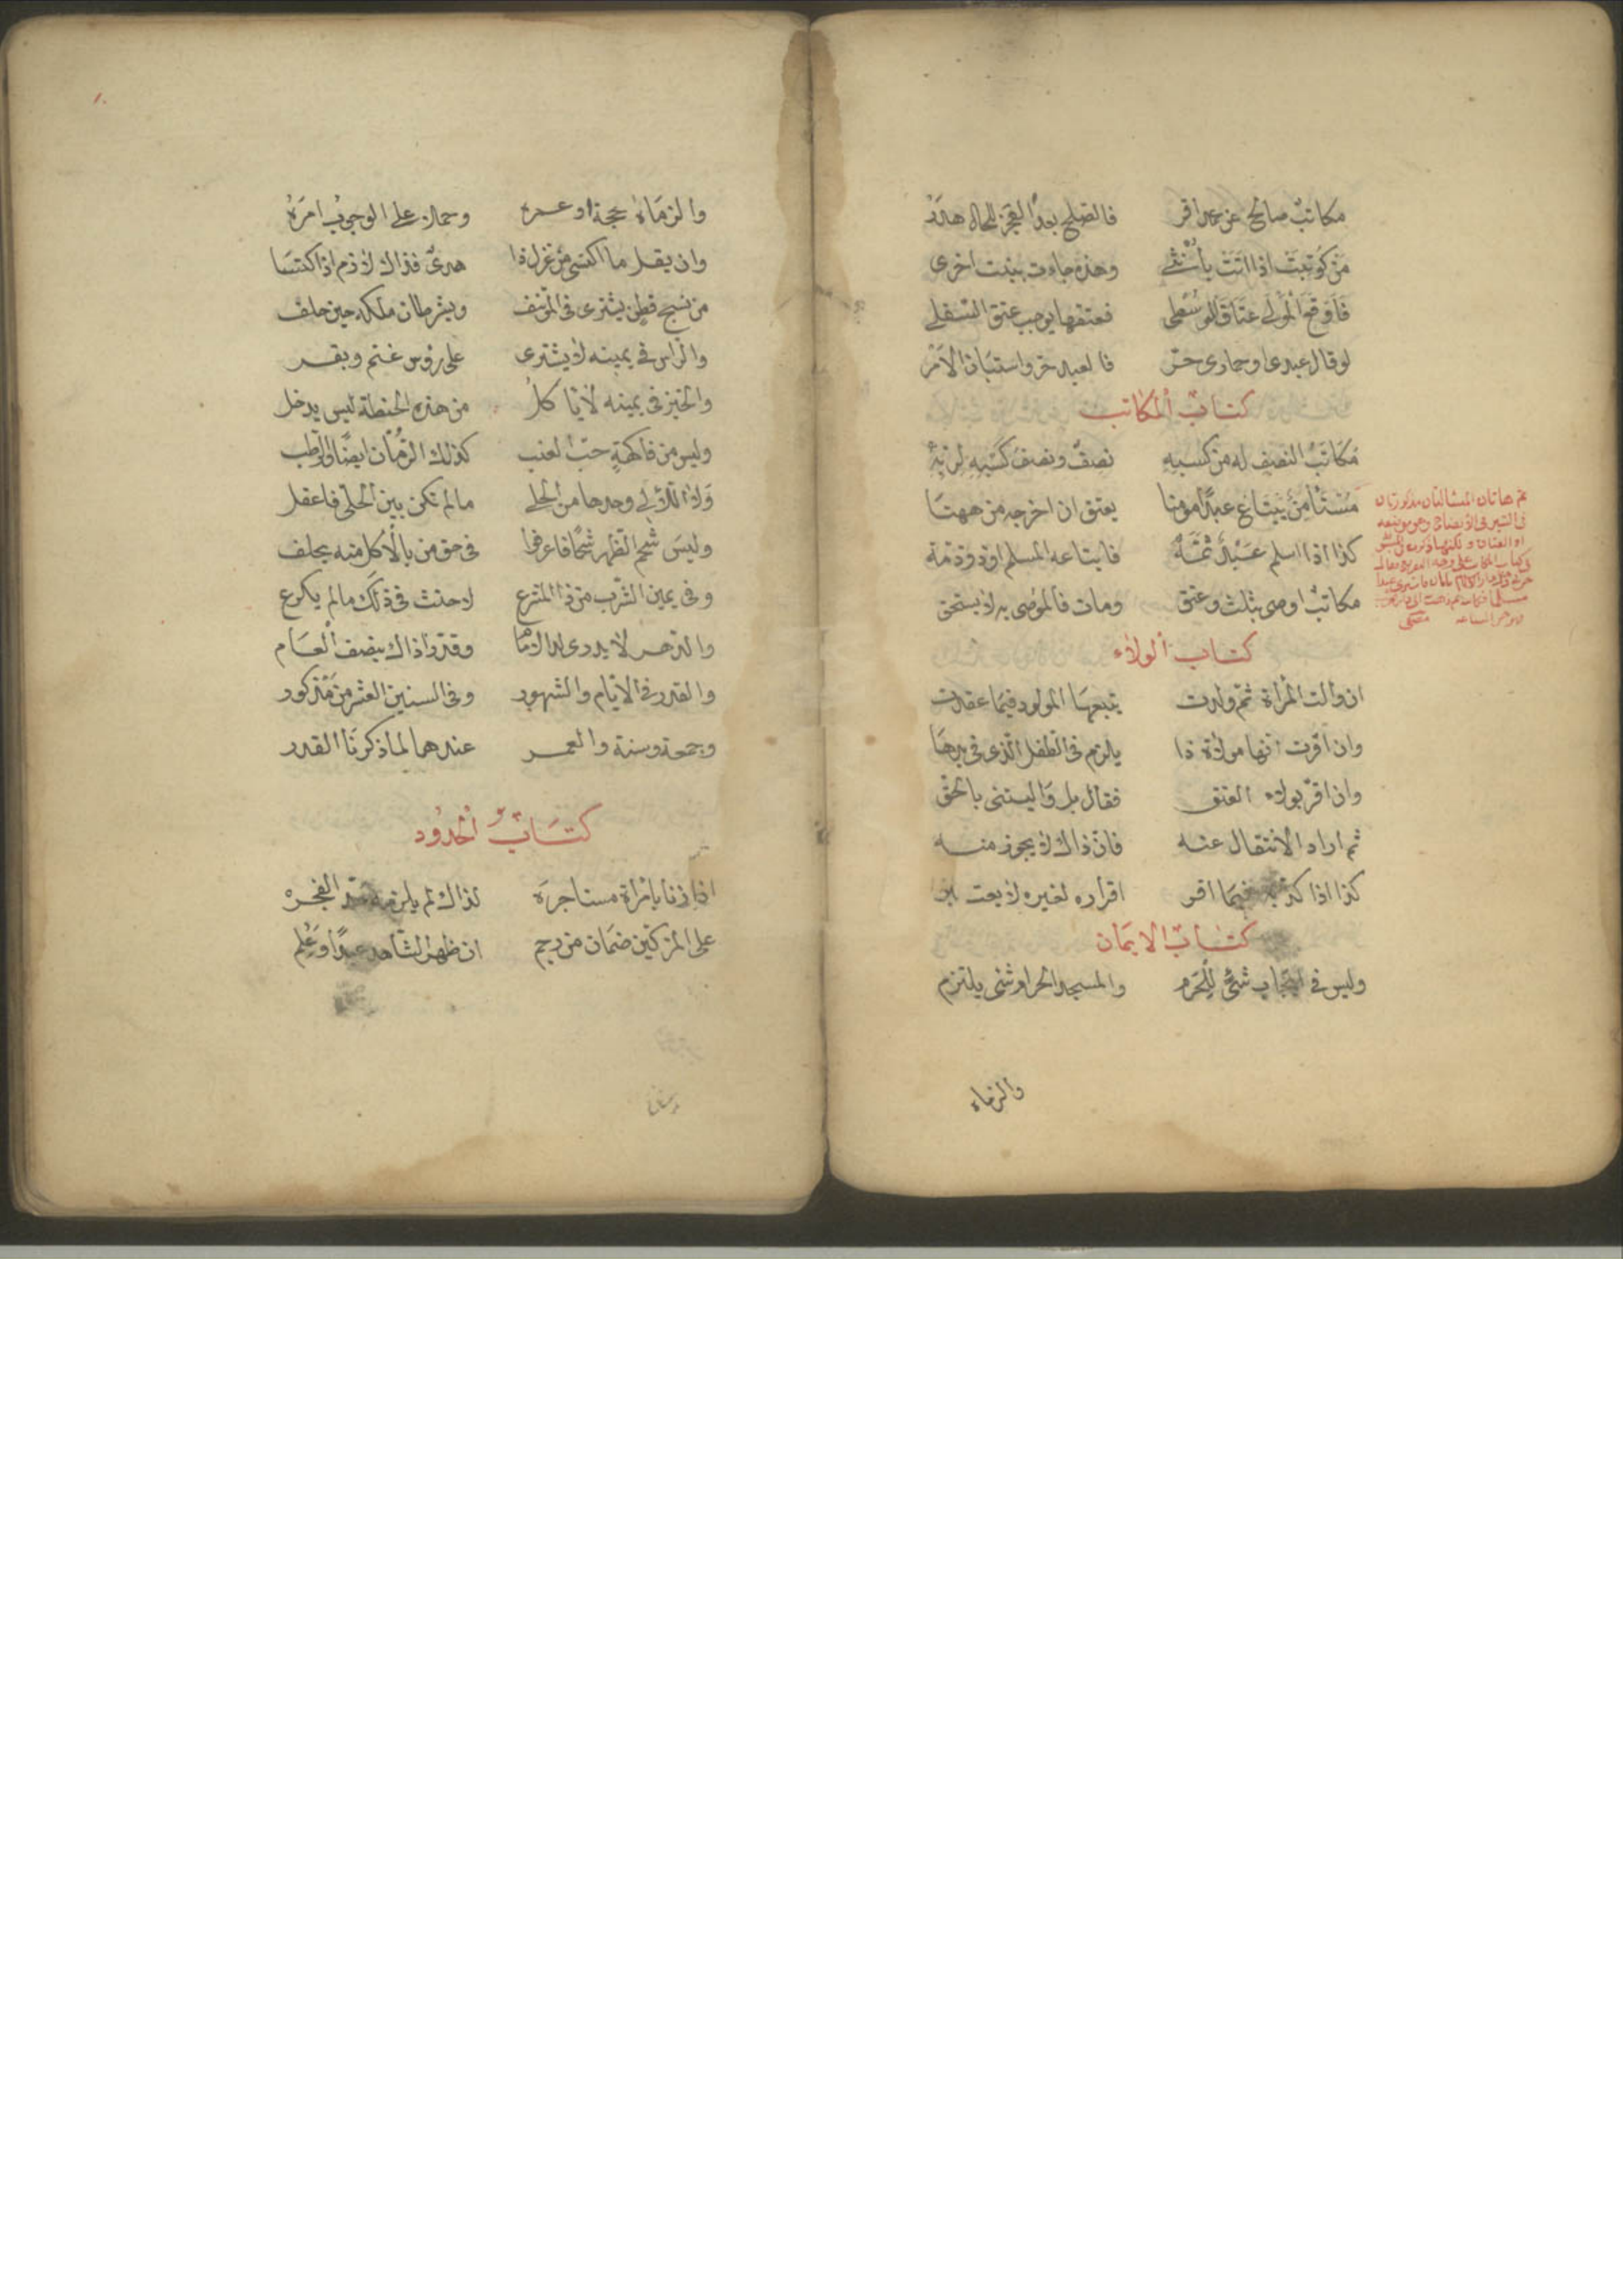 مكاتبٌ صالح عن عمد اقر فالصلح بعد العجز للحال هدر
من كوتبت اذا اتت بأنثى وهذه جاءت ببنت اخرى
فاوقع المولى عتاق الوسطى فعتقها يوجب عتق السفلى
لو قال عبدى او حمارى حر فالعبد حر واستبان الامر
كتاب المكاتب
مكاتب النصف له من كسبه نصف ونصف كسبه لربه
مستأمن يبتاع عبدًا مومنا يعتق ان اخرجه من ههنا
كذا اذا اسلم عبدٌ ثمّه فابتاعه المسلم او ذو ذمة
مكاتبٌ اوصى بثلث وعتق ومات فالموصى به لا يستحق
كتاب الولاء
ان والت المرأة ثم ولدت يتبعها المولود فيما عقدت
وان اقرت انها مولاة ذا يلزم فى الطفل الذى فى يدها
وان اقر بولاء العتق فقال بل واليتنى بالحق
ثم اراد الانتقال عنه فان ذاك لا يجوز منه
كذا اذا كذبه فيما اقر اقراره لغيره لا يعتبر
كتاب الايمان
وليس فى ايجاب شئ للحرم والمسجد الحرام شئ يلتزم
ثم هاتان المسالتان مذكورتان
والزماه
والزماه بحجة او عمره وحملان على الوجوب امره
وان يقل ما اكتسى من غزل ذا هدى فذاك لازم اذا اكتسا
من نسج قطن يشترى فى المؤتنف ويشرطان ملكه حين حلف
والراس فى يمينه لا يشترى على رؤس غنم وبقر
والخبز فى يمينه لا يأكل من هذه الحنطة ليس يدخل
وليس من فاكهة حب العنب كذلك الرمان ايضًا والرطب
ولا اللآلى وحدها من الحلى ما لم تكن بين الحلى فاعقل
وليس شحم الظهر شحمًا فاعرف فى حق من بالاكل منه يحلف
وفى يمين الشرب من ذا المترع لا حنث فى ذلك ما لم يكرع
والدهر لا يدرى لذاك ما وقدرا ذاك بنصف العام
والقدر فى الايام والشهور وفى السنين العشر من مذكور
وجمعة وسنة والعمر عندهما لما ذكرنا القدر
كتاب الحدود
اذا زنا بامرأة مستاجره لذاك لم يلزمه حد الفجره
على المزكين ضمان من رجم ان ظهر الشاهد عبدًا وعلم